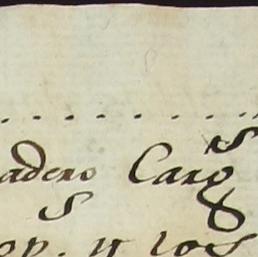 adero Carg
s
op. y los